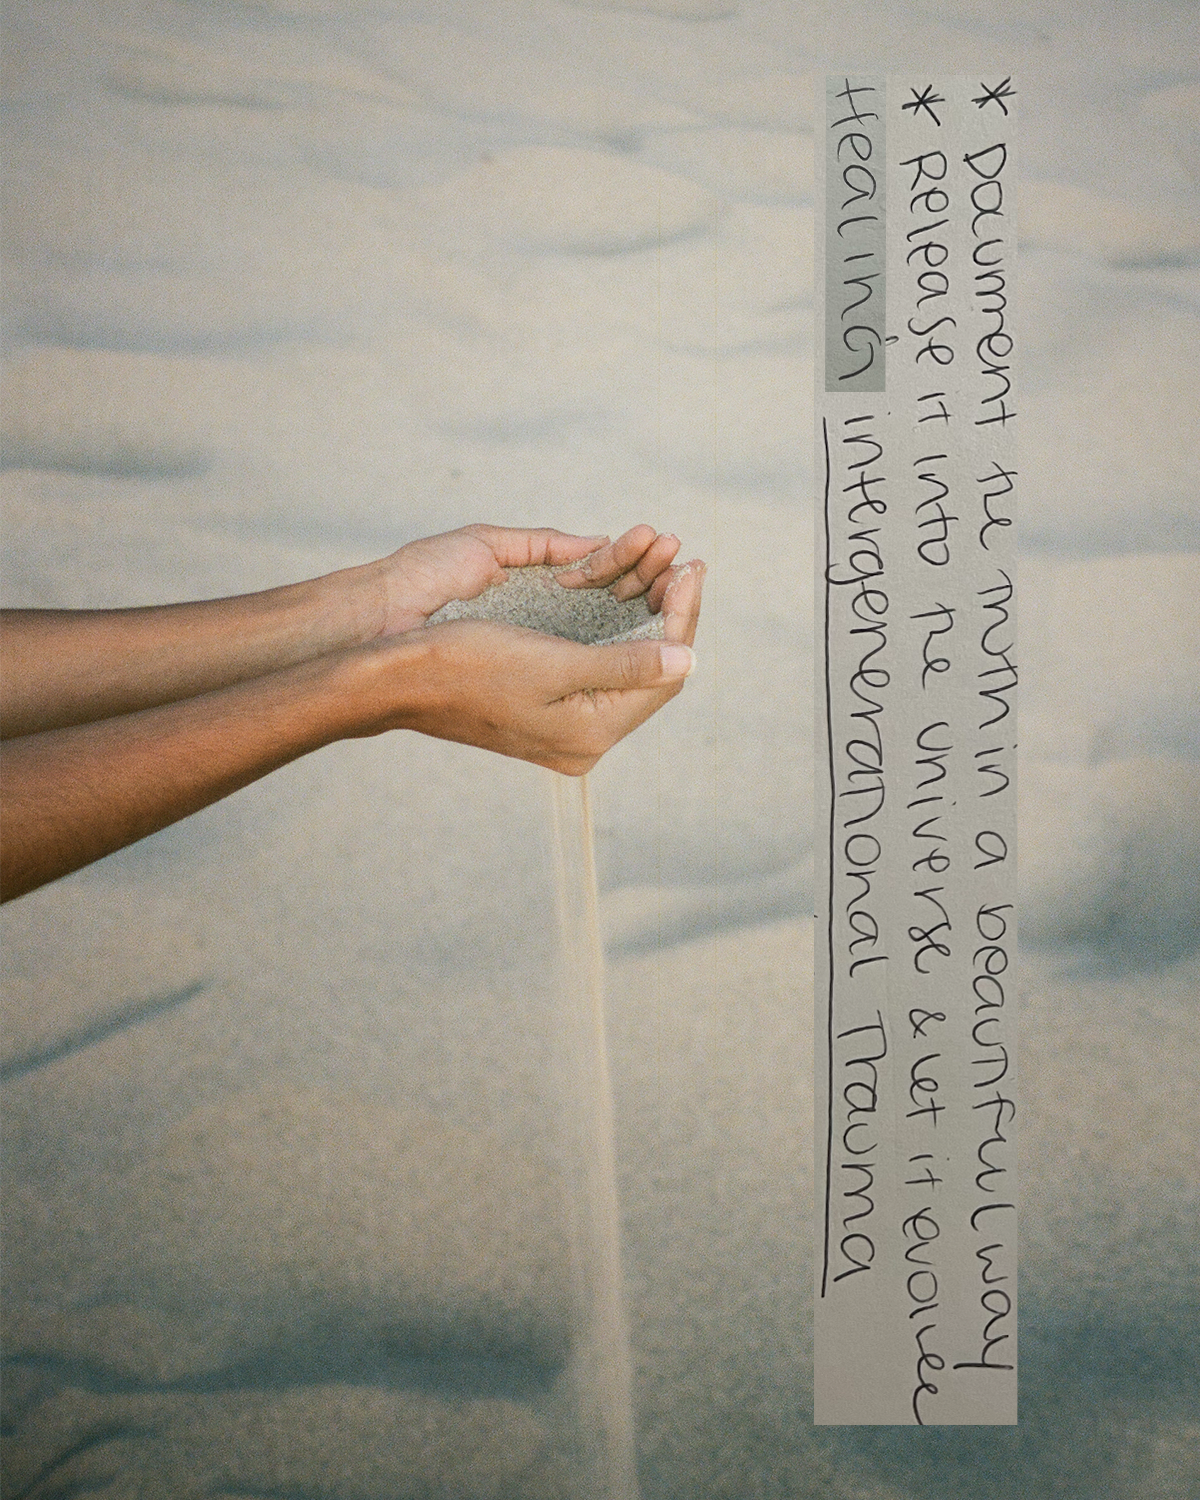 * Document the truth in a beautiful way
* Release it into the universe & let it evolve
Healing intergenerational Trauma